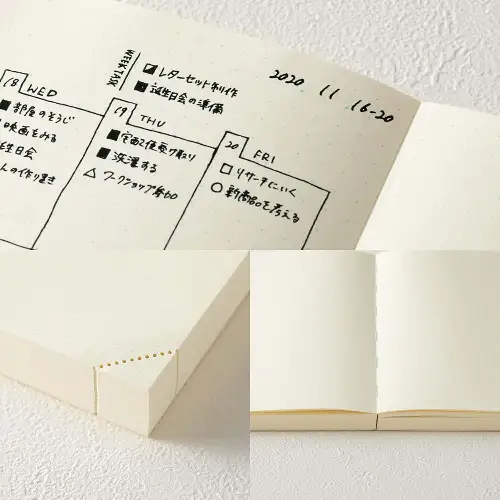 2020 11 16-20
WEEK TASK
レターセット制作
誕生日会の準備
18 WED
部屋のそうじ
映画をみる
生日会
の作り置き
19 THU
宅配便受け取り
洗濯する
ワークショップ参加
20 FRI
リサーチにいく
新商品を考える